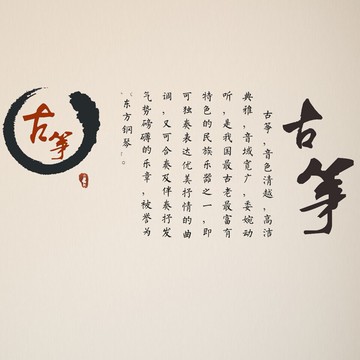 古筝
古筝，音色清越，高洁
典雅，音域宽广，委婉动
听，是我国最古老最富有
特色的民族乐器之一，即
可独奏表达优美抒情的曲
调，又可合奏及伴奏抒发
气势磅礴的乐章，被誉为
“东方钢琴”。
古筝